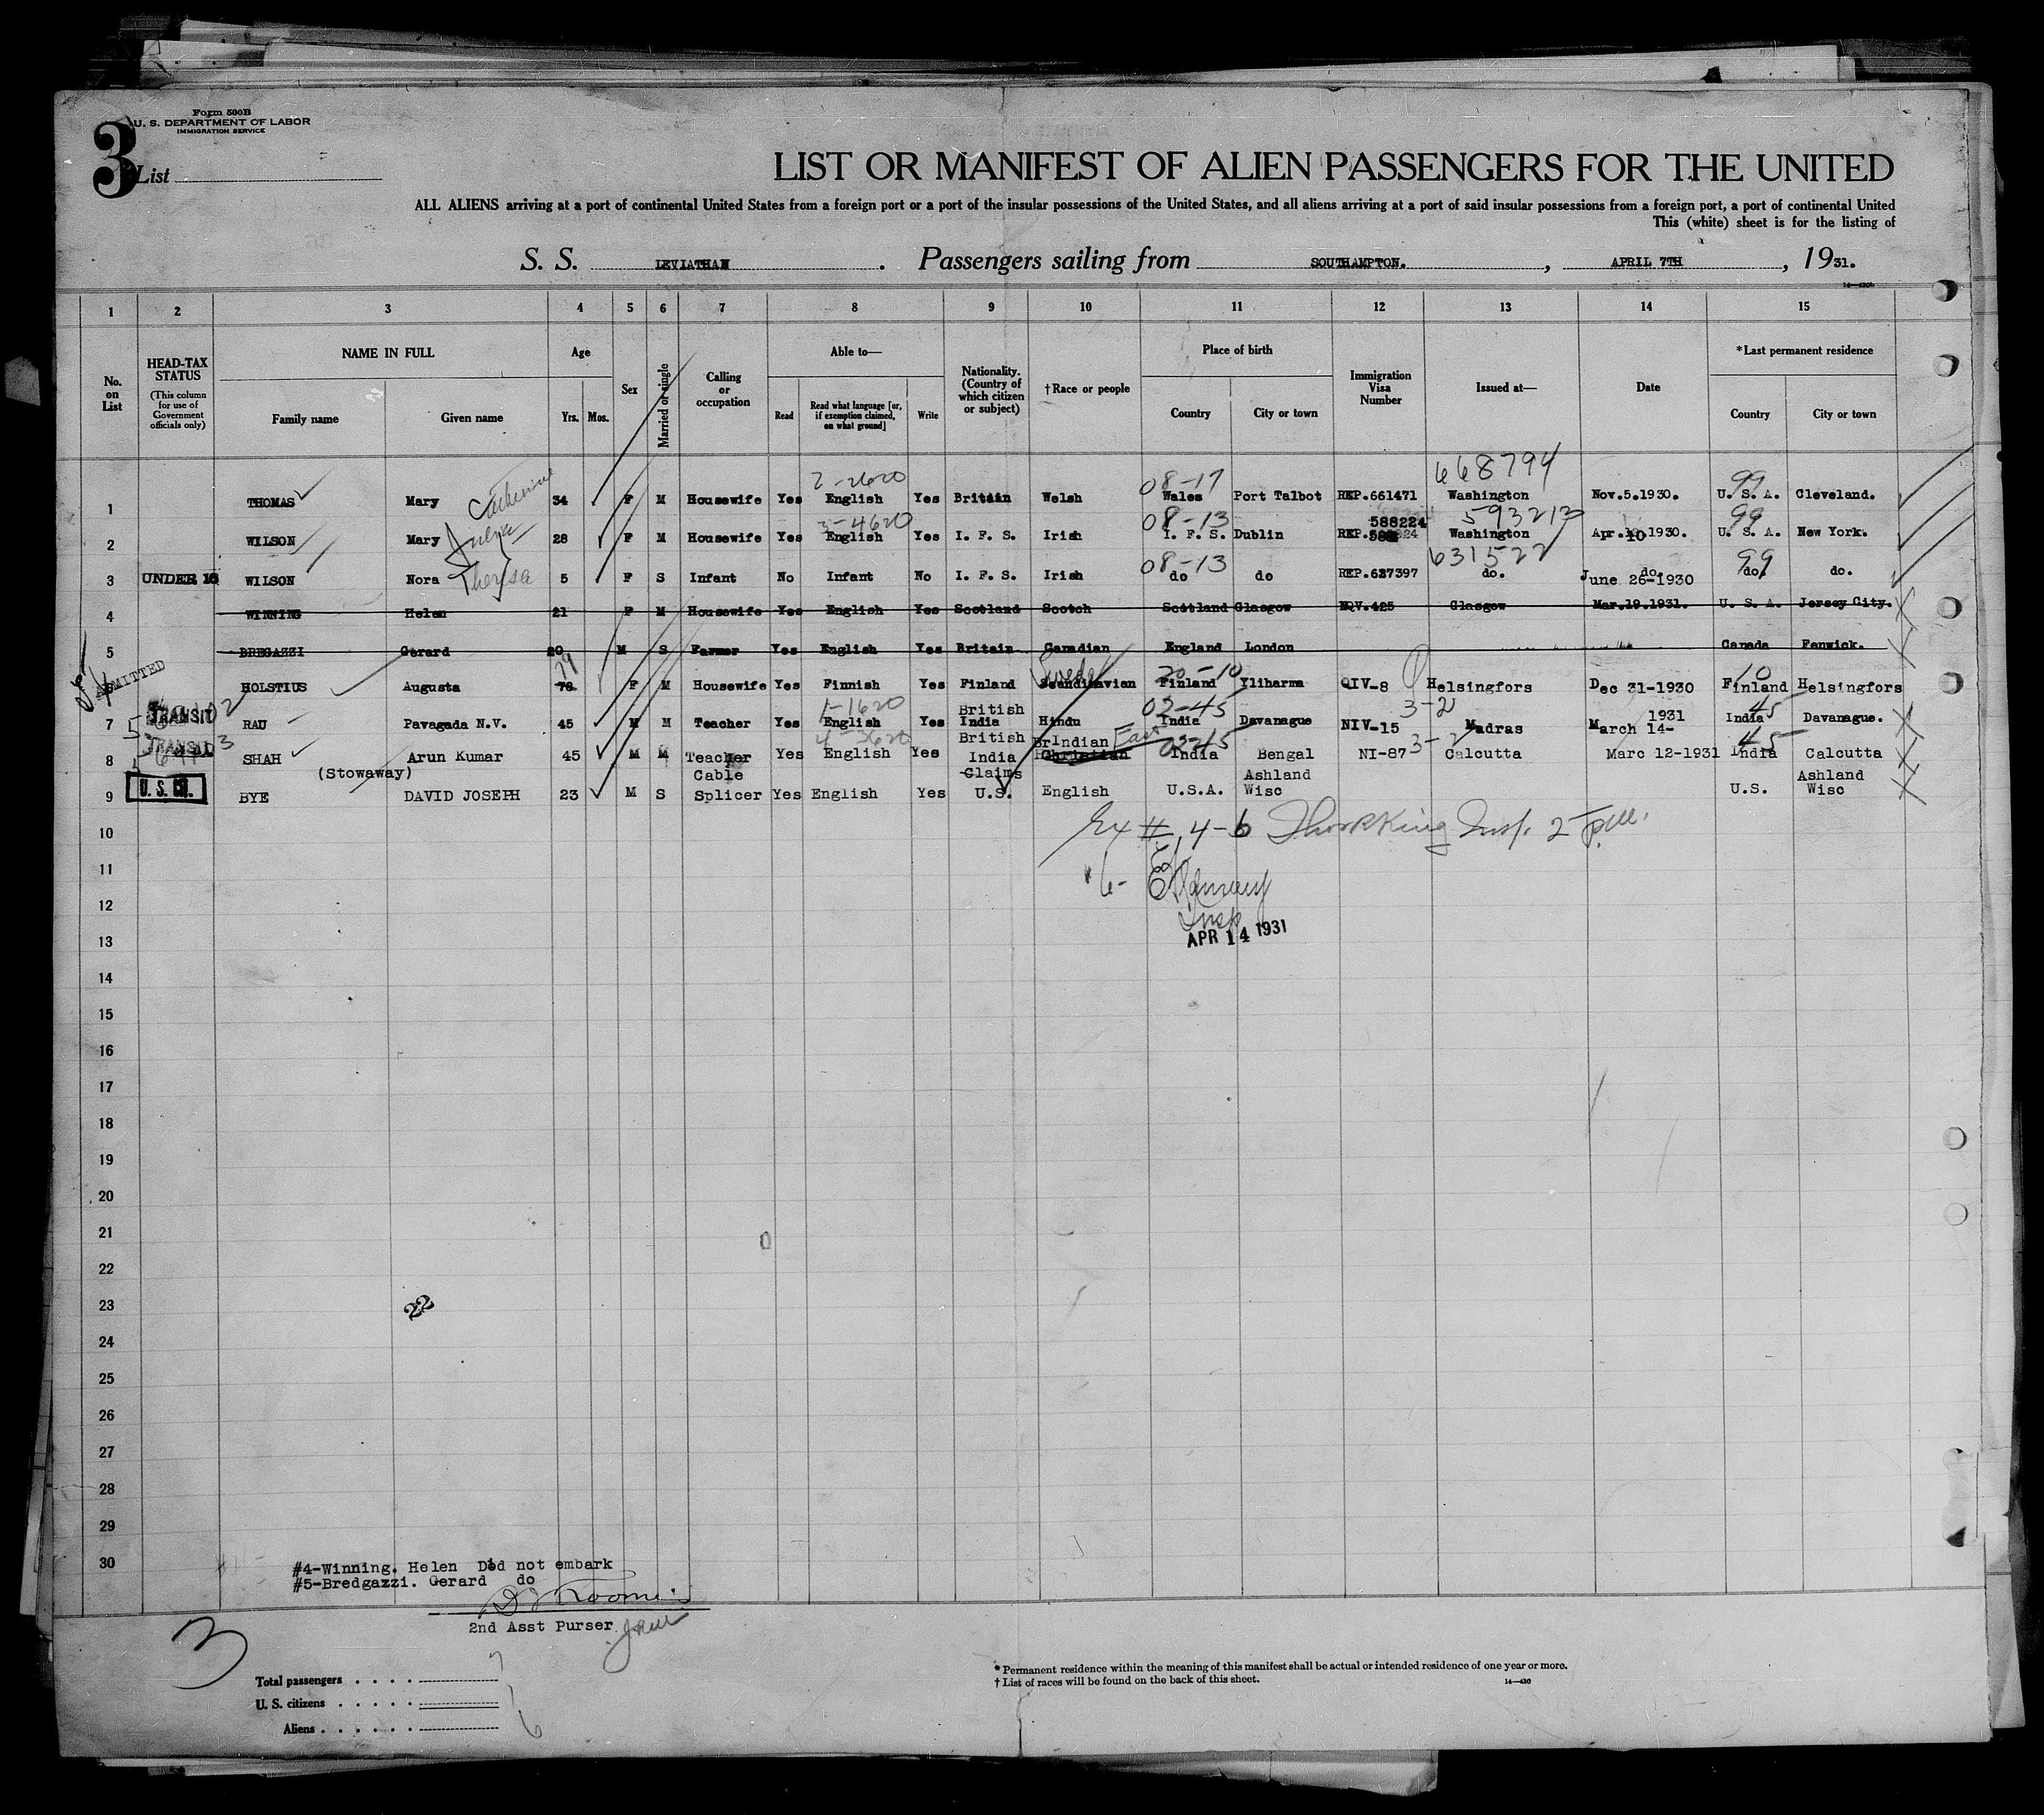 Form 500B
U. S. DEPARTMENT OF LABOR
IMMIGRATION SERVICE
3
List
LIST OR MANIFEST OF ALIEN PASSENGERS FOR THE UNITED
ALL ALIENS arriving at a port of continental United States from a foreign port or a port of the insular possessions of the United States, and all aliens arriving at a port of said insular possessions from a foreign port, a port of continental United
This (white) sheet is for the listing of
S. S. LEVIATHAN . Passengers sailing from SOUTHAMPTON. , APRIL 7TH , 1931.
1 2 3 4 5 6 7 8 9 10 11 12 13 14 15
No. on List
HEAD-TAX STATUS
(This column for use of Government officials only)
NAME IN FULL
Family name Given name
Age
Yrs. Mos.
Sex
Married or single
Calling or occupation
Able to—
Read
Read what language [or, if exemption claimed, on what ground]
Write
Nationality. (Country of which citizen or subject)
† Race or people
Place of birth
Country City or town
Immigration Visa Number
Issued at—
Date
* Last permanent residence
Country City or town
2-2620 08-17 668794 99
1 THOMAS Mary Catherine 34 F M Housewife Yes English Yes Britain Welsh Wales Port Talbot REP.661471 Washington Nov.5.1930. U. S. A. Cleveland.
3-4620 08-13 588224 593213 99
2 WILSON Mary Julia 28 F M Housewife Yes English Yes I. F. S. Irish I. F. S. Dublin REP. Washington Apr.10 1930. U. S. A. New York.
08-13 631522 99
3 UNDER 16 WILSON Nora Theresa 5 F S Infant No Infant No I. F. S. Irish do do REP.627397 do. do. June 26-1930 do. do.
4 WINNING Helen 21 F M Housewife Yes English Yes Scotland Scotch Scotland Glasgow NQV.425 Glasgow Mar.19.1931. U. S. A. Jersey City.
5 BREGAZZI Gerard 20 M S Farmer Yes English Yes Britain Canadian England London Canada Fenwick.
ADMITTED 79 Swede 20-10 10
HOLSTIUS Augusta 78 F M Housewife Yes Finnish Yes Finland Scandinavian Finland Yliharma QIV-8 Helsingfors Dec 31-1930 Finland Helsingfors
1-1620 British 02-45 3-2 1931 45
7 TRANSIT RAU Pavagada N.V. 45 M M Teacher Yes English Yes India Hindu India Davanague NIV-15 Madras March 14- India Davanague.
4-3620 British BrIndian East 02-45 3-2 45
8 TRANSIT SHAH Arun Kumar 45 M M Teacher Yes English Yes India Christian India Bengal NI-87 Calcutta Marc 12-1931 India Calcutta
(Stowaway) Cable Claims Ashland Ashland
9 U. S. CIT. BYE DAVID JOSEPH 23 M S Splicer Yes English Yes U.S. English U.S.A. Wisc U.S. Wisc
10
11
12
Insp
APR 14 1931
13
14
15
16
17
18
19
20
21
22
23 22
24
25
26
27
28
29
30
#4-Winning. Helen Did not embark
#5-Bredgazzi. Gerard do
2nd Asst Purser
3
Total passengers . . . . 7
U. S. citizens . . . . . 1
Aliens . . . . . . 6
* Permanent residence within the meaning of this manifest shall be actual or intended residence of one year or more.
† List of races will be found on the back of this sheet. 14—430